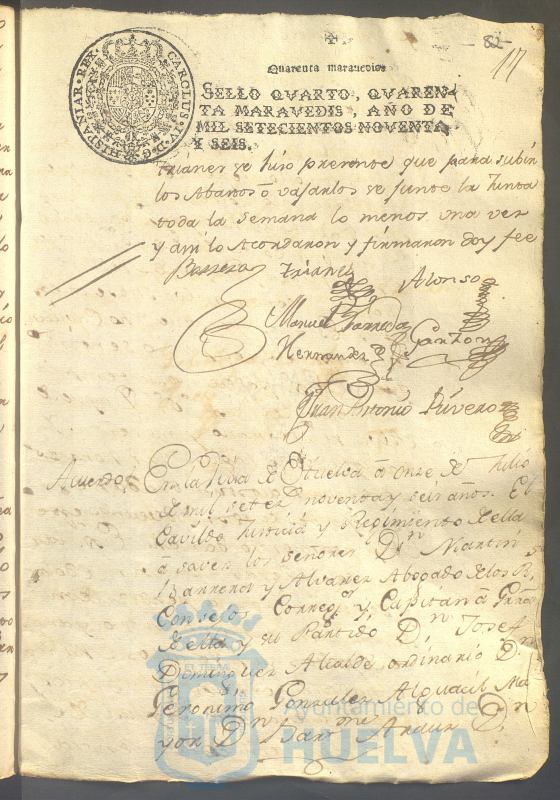 ✠
82
117
HISPANIAR. REX. CAROLUS. IV. D. G.
Quarenta maravedis
SELLO QVARTO, QVAREN-
TA MARAVEDIS, AÑO DE
MIL SETECIENTOS NOVENTA
Y SEIS.
Trianes se hiso presente que para subir
los Abastos ô vajarlos se junte la Junta
toda la Semana lo menos una vez
y asi lo Acordaron y firmaron doy fee
Barrera Trianes Alonso
Manuel
Hernandez Garzon
Juan Antonio Rivero
Acuerdo En la Villa de Huelva â once de Julio
de mil setez noventa y seis años. El
Cavildo Justicia y Regimiento de ella
a saver los Señores Dn Martin
Barrera y Alvarez Abogado de los Rs
Consejos Corregor y Capitan â Gra
de ella y su Partido Dn Josef
Dominguez Alcalde ordinario Dn
Geronimo Gonzalez Alguacil Ma
yor Dn Barme Dn
Ayuntamiento de
HUELVA